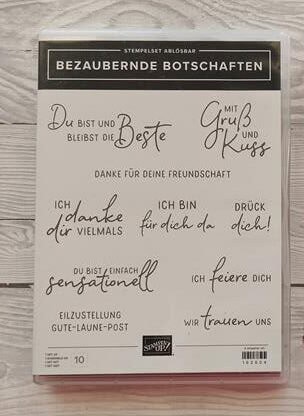 STEMPELSET ABLÖSBAR
BEZAUBERNDE BOTSCHAFTEN
Du BIST UND
BLEIBST DIE Beste
MIT
Gruß
UND
Kuss
DANKE FÜR DEINE FREUNDSCHAFT
ICH danke
dir VIELMALS
ICH BIN
für dich da
DRÜCK
dich!
DU BIST EINFACH
sensationell
ICH feiere DICH
EILZUSTELLUNG
GUTE-LAUNE-POST
WIR trauen UNS
10
STAMPIN' UP!